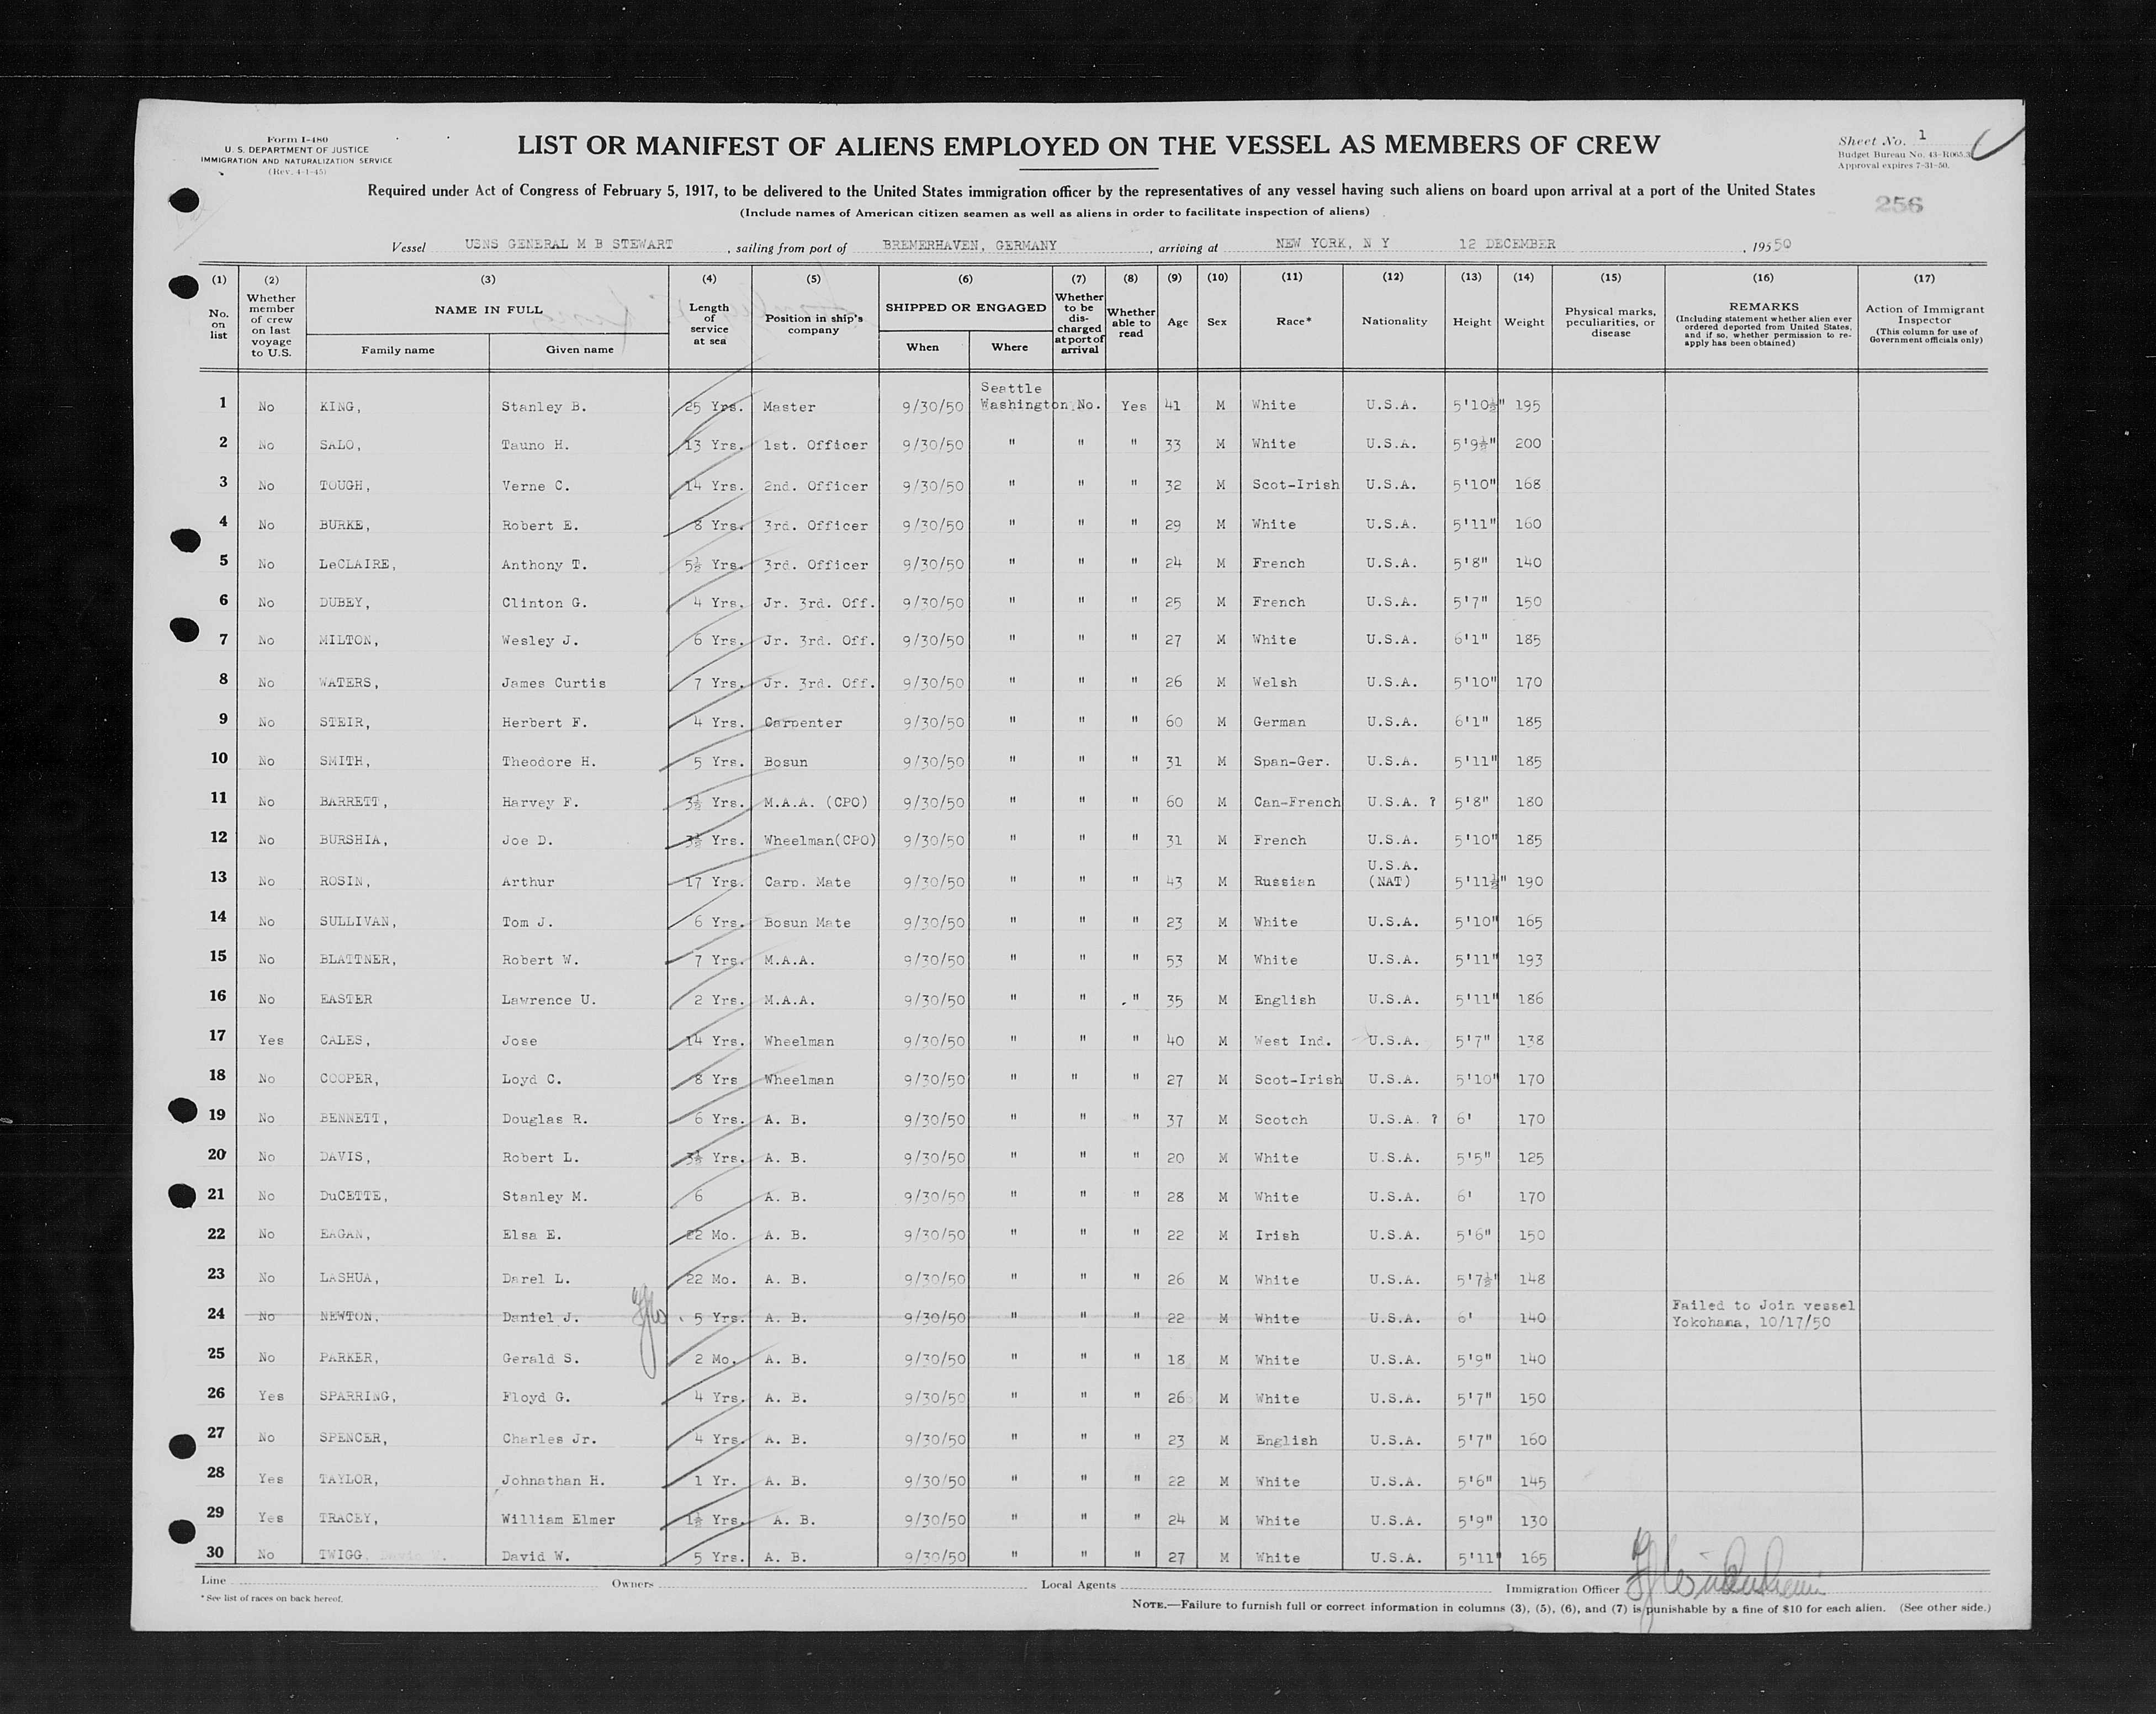 Form I-480
U. S. DEPARTMENT OF JUSTICE
IMMIGRATION AND NATURALIZATION SERVICE
(Rev. 4-1-45)
LIST OR MANIFEST OF ALIENS EMPLOYED ON THE VESSEL AS MEMBERS OF CREW
Sheet No. 1
Budget Bureau No. 43-R065.3
Approval expires 7-31-50.
Required under Act of Congress of February 5, 1917, to be delivered to the United States immigration officer by the representatives of any vessel having such aliens on board upon arrival at a port of the United States
(Include names of American citizen seamen as well as aliens in order to facilitate inspection of aliens)
256
Vessel USNS GENERAL M B STEWART, sailing from port of BREMERHAVEN, GERMANY, arriving at NEW YORK, N Y 12 DECEMBER, 19550
(1) No. on list
(2) Whether member of crew on last voyage to U.S.
(3) NAME IN FULL Family name Given name
(4) Length of service at sea
(5) Position in ship's company
(6) SHIPPED OR ENGAGED When Where
(7) Whether to be discharged at port of arrival
(8) Whether able to read
(9) Age
(10) Sex
(11) Race*
(12) Nationality
(13) Height
(14) Weight
(15) Physical marks, peculiarities, or disease
(16) REMARKS (Including statement whether alien ever ordered deported from United States, and if so, whether permission to re-apply has been obtained)
(17) Action of Immigrant Inspector (This column for use of Government officials only)
1 No KING, Stanley B. 25 Yrs. Master 9/30/50 Seattle Washington No. Yes 41 M White U.S.A. 5'10½" 195
2 No SALO, Tauno H. 13 Yrs. 1st. Officer 9/30/50 " " " 33 M White U.S.A. 5'9½" 200
3 No TOUGH, Verne C. 14 Yrs. 2nd. Officer 9/30/50 " " " 32 M Scot-Irish U.S.A. 5'10" 168
4 No BURKE, Robert E. 8 Yrs. 3rd. Officer 9/30/50 " " " 29 M White U.S.A. 5'11" 160
5 No LeCLAIRE, Anthony T. 5½ Yrs. 3rd. Officer 9/30/50 " " " 24 M French U.S.A. 5'8" 140
6 No DUBEY, Clinton G. 4 Yrs. Jr. 3rd. Off. 9/30/50 " " " 25 M French U.S.A. 5'7" 150
7 No MILTON, Wesley J. 6 Yrs. Jr. 3rd. Off. 9/30/50 " " " 27 M White U.S.A. 6'1" 185
8 No WATERS, James Curtis 7 Yrs. Jr. 3rd. Off. 9/30/50 " " " 26 M Welsh U.S.A. 5'10" 170
9 No STEIR, Herbert F. 4 Yrs. Carpenter 9/30/50 " " " 60 M German U.S.A. 6'1" 185
10 No SMITH, Theodore H. 5 Yrs. Bosun 9/30/50 " " " 31 M Span-Ger. U.S.A. 5'11" 185
11 No BARRETT, Harvey F. 3½ Yrs. M.A.A. (CPO) 9/30/50 " " " 60 M Can-French U.S.A. ? 5'8" 180
12 No BURSHIA, Joe D. 3½ Yrs. Wheelman(CPO) 9/30/50 " " " 31 M French U.S.A. 5'10" 185
13 No ROSIN, Arthur 17 Yrs. Carp. Mate 9/30/50 " " " 43 M Russian U.S.A. (NAT) 5'11½" 190
14 No SULLIVAN, Tom J. 6 Yrs. Bosun Mate 9/30/50 " " " 23 M White U.S.A. 5'10" 165
15 No BLATTNER, Robert W. 7 Yrs. M.A.A. 9/30/50 " " " 53 M White U.S.A. 5'11" 193
16 No EASTER Lawrence U. 2 Yrs. M.A.A. 9/30/50 " " " 35 M English U.S.A. 5'11" 186
17 Yes CALES, Jose 14 Yrs. Wheelman 9/30/50 " " " 40 M West Ind. U.S.A. 5'7" 138
18 No COOPER, Loyd C. 8 Yrs Wheelman 9/30/50 " " " 27 M Scot-Irish U.S.A. 5'10" 170
19 No BENNETT, Douglas R. 6 Yrs. A. B. 9/30/50 " " " 37 M Scotch U.S.A. ? 6' 170
20 No DAVIS, Robert L. 3½ Yrs. A. B. 9/30/50 " " " 20 M White U.S.A. 5'5" 125
21 No DuCETTE, Stanley M. 6 A. B. 9/30/50 " " " 28 M White U.S.A. 6' 170
22 No EAGAN, Elsa E. 22 Mo. A. B. 9/30/50 " " " 22 M Irish U.S.A. 5'6" 150
23 No LASHUA, Darel L. 22 Mo. A. B. 9/30/50 " " " 26 M White U.S.A. 5'7½" 148
24 No NEWTON, Daniel J. 5 Yrs. A. B. 9/30/50 " " " 22 M White U.S.A. 6' 140 Failed to Join vessel Yokohama, 10/17/50
25 No PARKER, Gerald S. 2 Mo. A. B. 9/30/50 " " " 18 M White U.S.A. 5'9" 140
26 Yes SPARRING, Floyd G. 4 Yrs. A. B. 9/30/50 " " " 26 M White U.S.A. 5'7" 150
27 No SPENCER, Charles Jr. 4 Yrs. A. B. 9/30/50 " " " 23 M English U.S.A. 5'7" 160
28 Yes TAYLOR, Johnathan H. 1 Yr. A. B. 9/30/50 " " " 22 M White U.S.A. 5'6" 145
29 Yes TRACEY, William Elmer 1½ Yrs. A. B. 9/30/50 " " " 24 M White U.S.A. 5'9" 130
30 No TWIGG, David W. 5 Yrs. A. B. 9/30/50 " " " 27 M White U.S.A. 5'11" 165
Line Owners Local Agents Immigration Officer
* See list of races on back hereof.
NOTE.—Failure to furnish full or correct information in columns (3), (5), (6), and (7) is punishable by a fine of $10 for each alien. (See other side.)